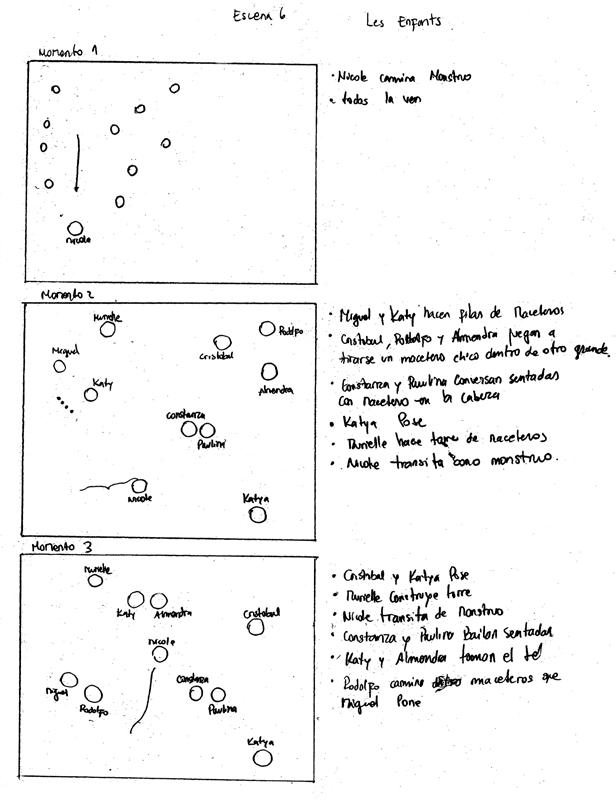 Escena 6
Les Enfants
Momento 1
Nicole
· Nicole camina Monstruo
· todos la ven
Momento 2
Murielle
Rodolfo
Miguel
Cristobal
Katy
Almendra
Constanza
Paulina
Nicole
Katya
· Miguel y Katy hacen filas de Maceteros
· Cristobal, Rodolfo y Almendra juegan a
tirarse un macetero chico dentro de otro grande.
· Constanza y Paulina conversan sentadas
con macetero en la cabeza
· Katya Pose
· Murielle hace torre de maceteros
· Nicole transita como monstruo.
Momento 3
Murielle
Katy
Almendra
Cristobal
Nicole
Miguel
Rodolfo
Constanza
Paulina
Katya
· Cristobal y Katya Pose
· Murielle Construye torre
· Nicole transita de Monstruo
· Constanza y Paulina Bailan sentadas
· Katy y Almendra toman el té
· Rodolfo camina maceteros que
Miguel Pone